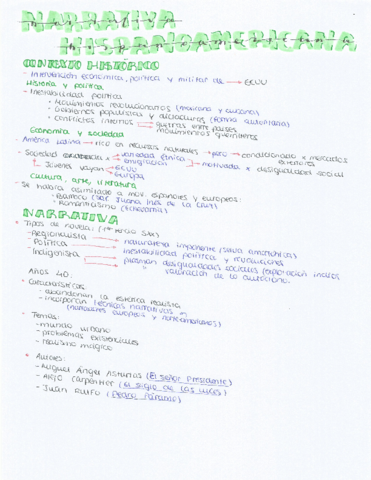 NARRATIVA
HISPANOAMERICANA
CONTEXTO HISTÓRICO
- Intervención económica, política y militar de → EEUU
Historia y política
- Inestabilidad política
• Movimientos revolucionarios (mexicana y cubana)
• Gobiernos populistas y dictaduras
• Conflictos internos → guerras entre países
movimientos guerrilleros
Economía y sociedad
- América Latina → rico en recursos naturales → pero → condicionado x mercados exteriores
- Sociedad → variedad étnica
emigración → motivada x desigualdades social
↳ Jóvenes vayan → EEUU
Europa
Cultura, arte, literatura
- Se había asimilado a mov. españoles y europeos:
• Barroco (Sor Juana Inés de la Cruz)
• Romanticismo (Echevarría)
NARRATIVA
• Tipos de novela: (1ª mitad SXX)
- Regionalista → naturaleza imponente (selva amazónica)
- Política → inestabilidad política y revoluciones
- Indigenista → plasman desigualdades sociales (explotación indios
valoración de lo autóctono.
Años 40:
• Características:
- abandonan la estética realista
- incorporan técnicas narrativas
(narradores europeos y norteamericanos)
• Temas:
- mundo urbano
- problemas existenciales
- realismo mágico
• Autores:
- Miguel Ángel Asturias (El señor Presidente)
- Alejo Carpentier (El siglo de las luces)
- Juan Rulfo (Pedro Páramo)